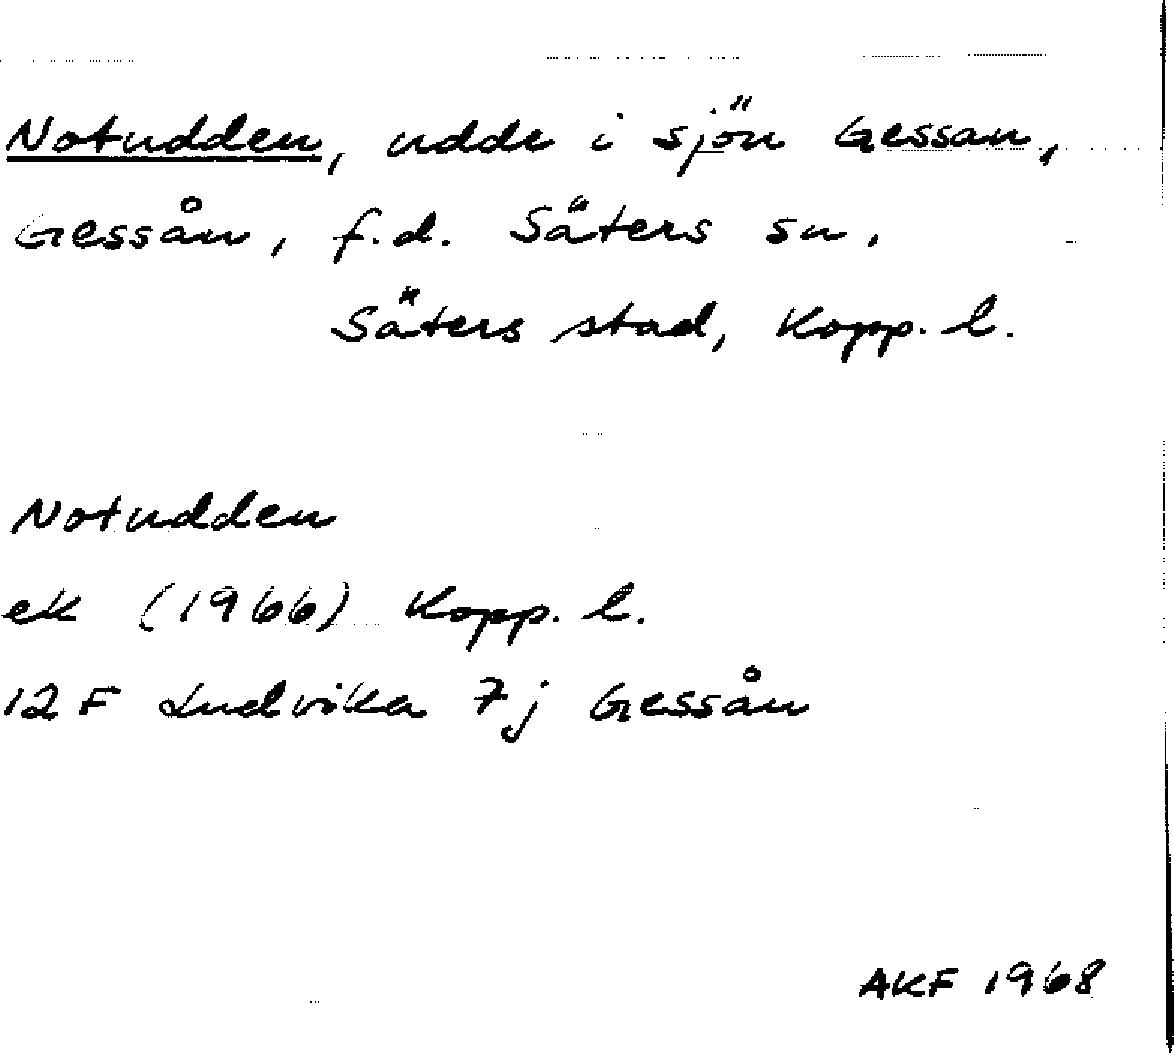 Notudden, udde i sjön Gessan,
Gessån, f.d. Säters sn,
Säters stad, Kopp. l.
Notudden
ek (1966) Kopp. l.
12 F Ludvika 7j Gessån
AKF 1968